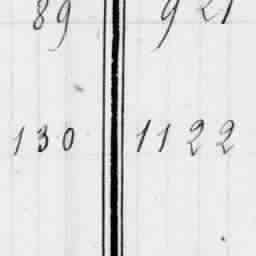 89 921
130 1122